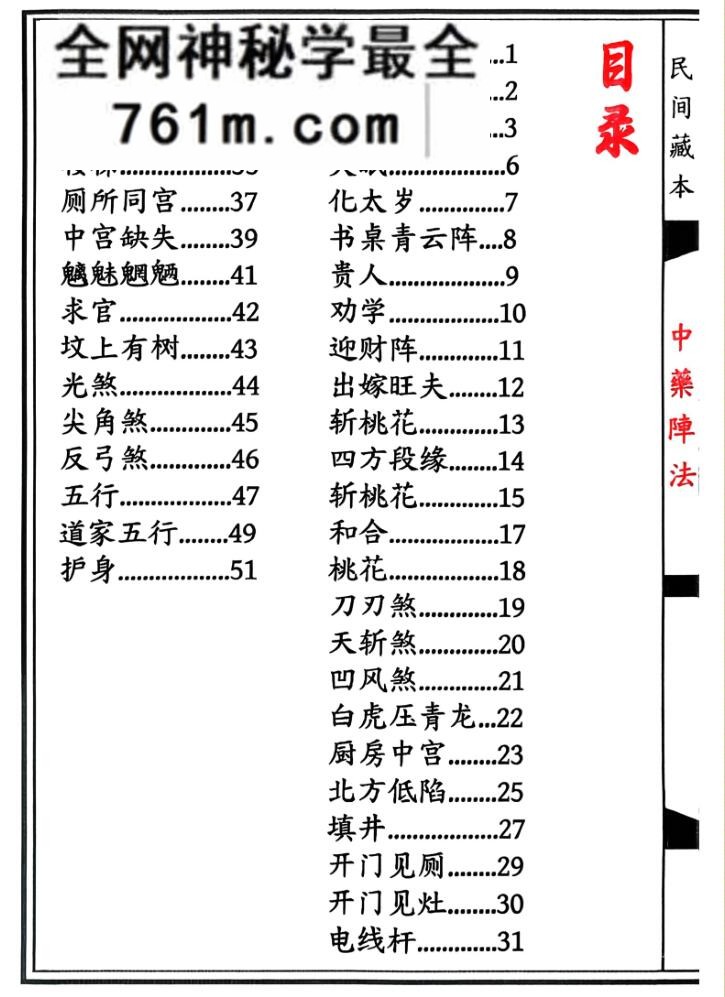 全网神秘学最全
761m.com
民间藏本
中藥陣法
目录
...1
...2
...3
...6
化太岁..............7
书桌青云阵....8
贵人...................9
劝学..................10
迎财阵.............11
出嫁旺夫........12
斩桃花.............13
四方段缘........14
斩桃花.............15
和合..................17
桃花..................18
刀刃煞.............19
天斩煞.............20
凹风煞.............21
白虎压青龙...22
厨房中宫........23
北方低陷........25
填井..................27
开门见厕........29
开门见灶........30
电线杆.............31
厕所同宫........37
中宫缺失........39
魑魅魍魉........41
求官..................42
坟上有树........43
光煞..................44
尖角煞.............45
反弓煞.............46
五行..................47
道家五行........49
护身..................51